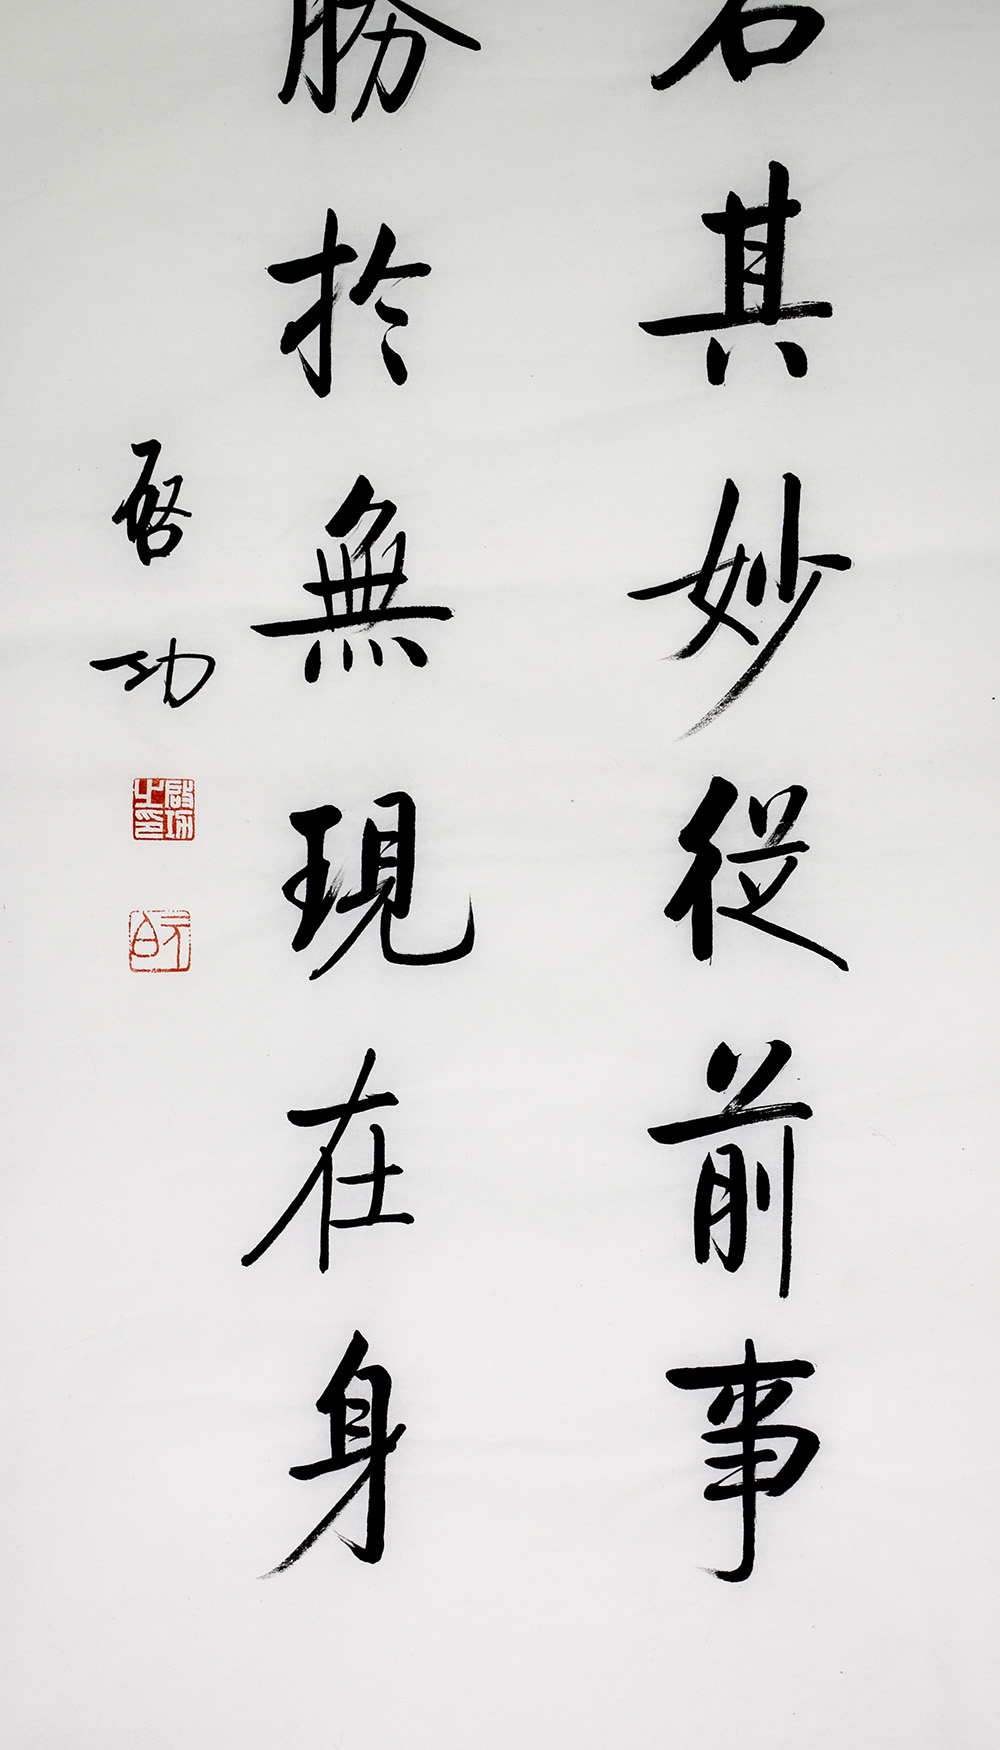 其妙從前事
勝於無現在身
啓功
啟功之印
元白